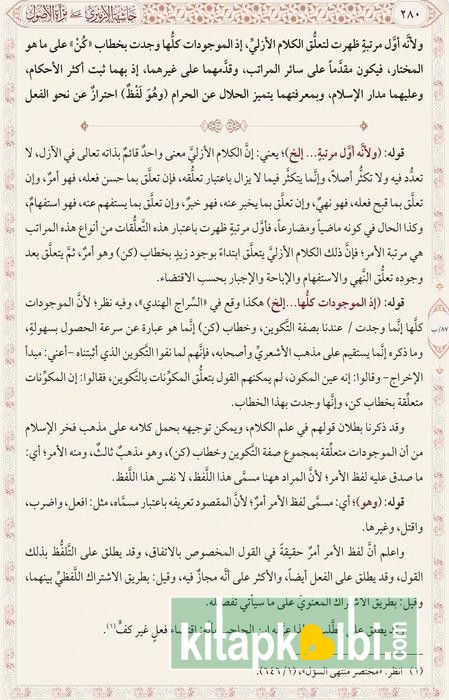 ٢٨٠ حاشية الإزميري على مرآة الأصول
ولأنَّه أوَّل مرتبةٍ ظهرت لتعلُّق الكلام الأزليِّ، إذ الموجودات كلُّها وجدت بخطاب «كُنْ» على ما هو
المختار، فيكون مقدَّماً على سائر المراتب، وقدَّمهما على غيرهما، إذ بهما ثبت أكثر الأحكام،
وعليهما مدار الإسلام، وبمعرفتهما يتميز الحلال عن الحرام (وهُوَ لَفْظٌ) احترازٌ عن نحو الفعل
قوله: (ولأنه أوَّل مرتبةٍ... إلخ)؛ يعني: إنَّ الكلام الأزليَّ معنى واحدٌ قائمٌ بذاته تعالى في الأزل، لا
تعدُّد فيه ولا تكثُّر أصلاً، وإنَّما يتكثَّر فيما لا يزال باعتبار تعلُّقه، فإن تعلَّق بما حسن فعله، فهو أمرٌ، وإن
تعلَّق بما قبح فعله، فهو نهيٌ، وإن تعلَّق بما يخبر عنه، فهو خبرٌ، وإن تعلَّق بما يستفهم عنه، فهو استفهامٌ،
وكذا الحال في كونه ماضياً ومضارعاً، فأوَّل مرتبةٍ ظهرت باعتبار هذه التَّعلُّقات من أنواع هذه المراتب
هي مرتبة الأمر؛ فإنَّ ذلك الكلام الأزليَّ يتعلَّق ابتداءً بوجود زيدٍ بخطاب (كن) وهو أمرٌ، ثمَّ يتعلَّق بعد
وجوده تعلُّق النَّهي والاستفهام والإباحة والإجبار بحسب الاقتضاء.
قوله: (إذ الموجودات كلُّها...إلخ) هكذا وقع في «السِّراج الهندي»، وفيه نظر؛ لأنَّ الموجودات
كلَّها إنَّما وجدت / عندنا بصفة التَّكوين، وخطاب (كن) إنَّما هو عبارة عن سرعة الحصول بسهولةٍ،
٨٧/ب
وما ذكره إنَّما يستقيم على مذهب الأشعريِّ وأصحابه، فإنَّهم لما نفوا التَّكوين الذي أثبتناه -أعني: مبدأ
الإخراج- وقالوا: إنه عين المكون، لم يمكنهم القول بتعلُّق المكوِّنات بالتَّكوين، فقالوا: إن المكوِّنات
متعلِّقة بخطاب كن، وإنَّها وجدت بهذا الخطاب.
وقد ذكرنا بطلان قولهم في علم الكلام، ويمكن توجيهه بحمل كلامه على مذهب فخر الإسلام
من أن الموجودات متعلِّقة بمجموع صفة التَّكوين وخطاب (كن)، وهو مذهبٌ ثالثٌ، ومنه الأمر؛ أي:
ما صدق عليه لفظ الأمر؛ لأنَّ المراد ههنا مسمَّى هذا اللَّفظ، لا نفس هذا اللَّفظ.
قوله: (وهو)؛ أي: مسمَّى لفظ الأمر أمرٌ؛ لأنَّ المقصود تعريفه باعتبار مسمَّاه، مثل: افعل، واضرب،
واقتل، وغيرها.
واعلم أنَّ لفظ الأمر أمرٌ حقيقةً في القول المخصوص بالاتفاق، وقد يطلق على التَّلفُّظ بذلك
القول، وقد يطلق على الفعل أيضاً، والأكثر على أنَّه مجازٌ فيه، وقيل: بطريق الاشتراك اللَّفظيِّ بينهما،
وقيل: بطريق الاشتراك المعنويِّ على ما سيأتي تفصيله.
وقد يطلق على الطَّلب ابن الحاجب بأنه: اقتضاء فعلٍ غير كفٍّ(١).
(١) انظر: «مختصر منتهى السؤل»، (١/ ٦٤٦).
kitapkalbi.com